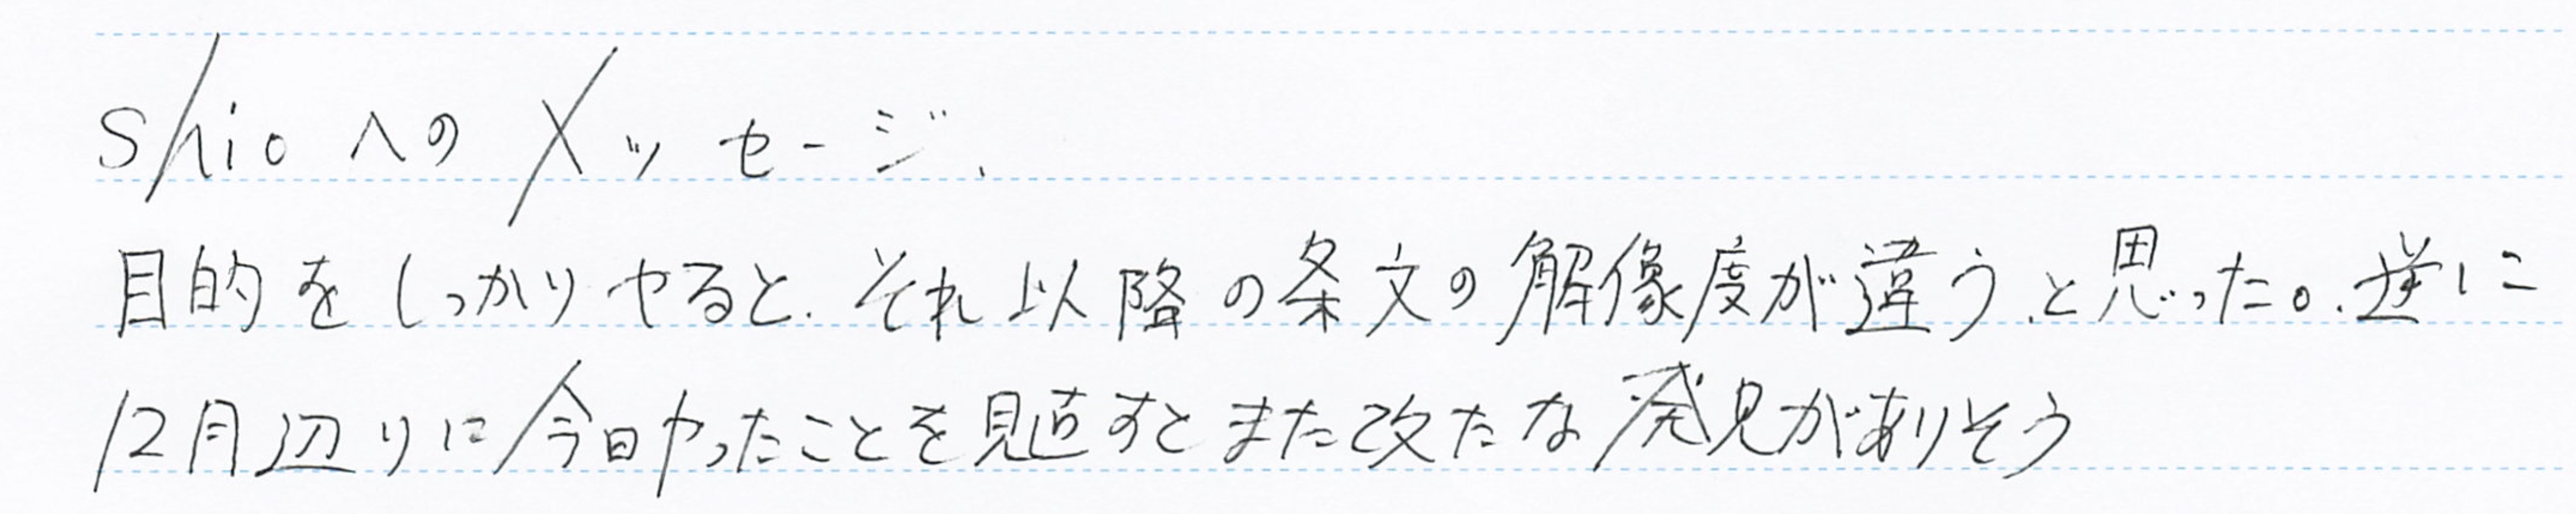 shioへのメッセージ、
目的をしっかりやると、それ以降の条文の解像度が違う、と思った。逆に
12月辺りに今日やったことを見直すとまた改たな発見がありそう